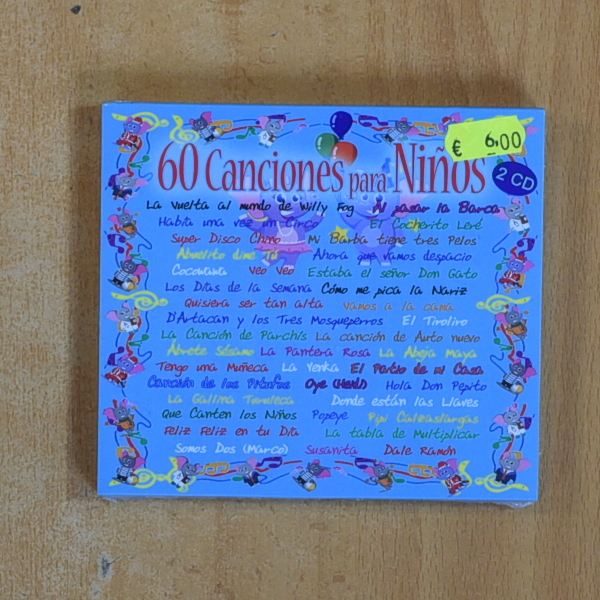 € 6,00
60 Canciones para Niños
2 CD
La vuelta al mundo de Willy Fog Al pasar la Barca
Había una vez un Circo El Cocherito Leré
Super Disco Chino Mi Barba tiene tres Pelos
Abuelito dime tú Ahora que vamos despacio
Cocouaua Veo Veo Estaba el señor Don Gato
Los Días de la Semana Cómo me pica la Nariz
Quisiera ser tan alta Vamos a la cama
D'Artacan y los Tres Mosqueperros El Tiroliro
La Canción de Parchís La canción de Auto nuevo
Ábrete Sésamo La Pantera Rosa La Abeja Maya
Tengo una Muñeca La Yenka El Patio de mi Casa
Canción de los Pitufos Oye (Heidi) Hola Don Pepito
La Gallina Turuleca Donde están las Llaves
Que Canten los Niños Popeye Pipi Calzaslargas
Feliz Feliz en tu Día La tabla de Multiplicar
Somos Dos (Marco) Susanita Dale Ramón